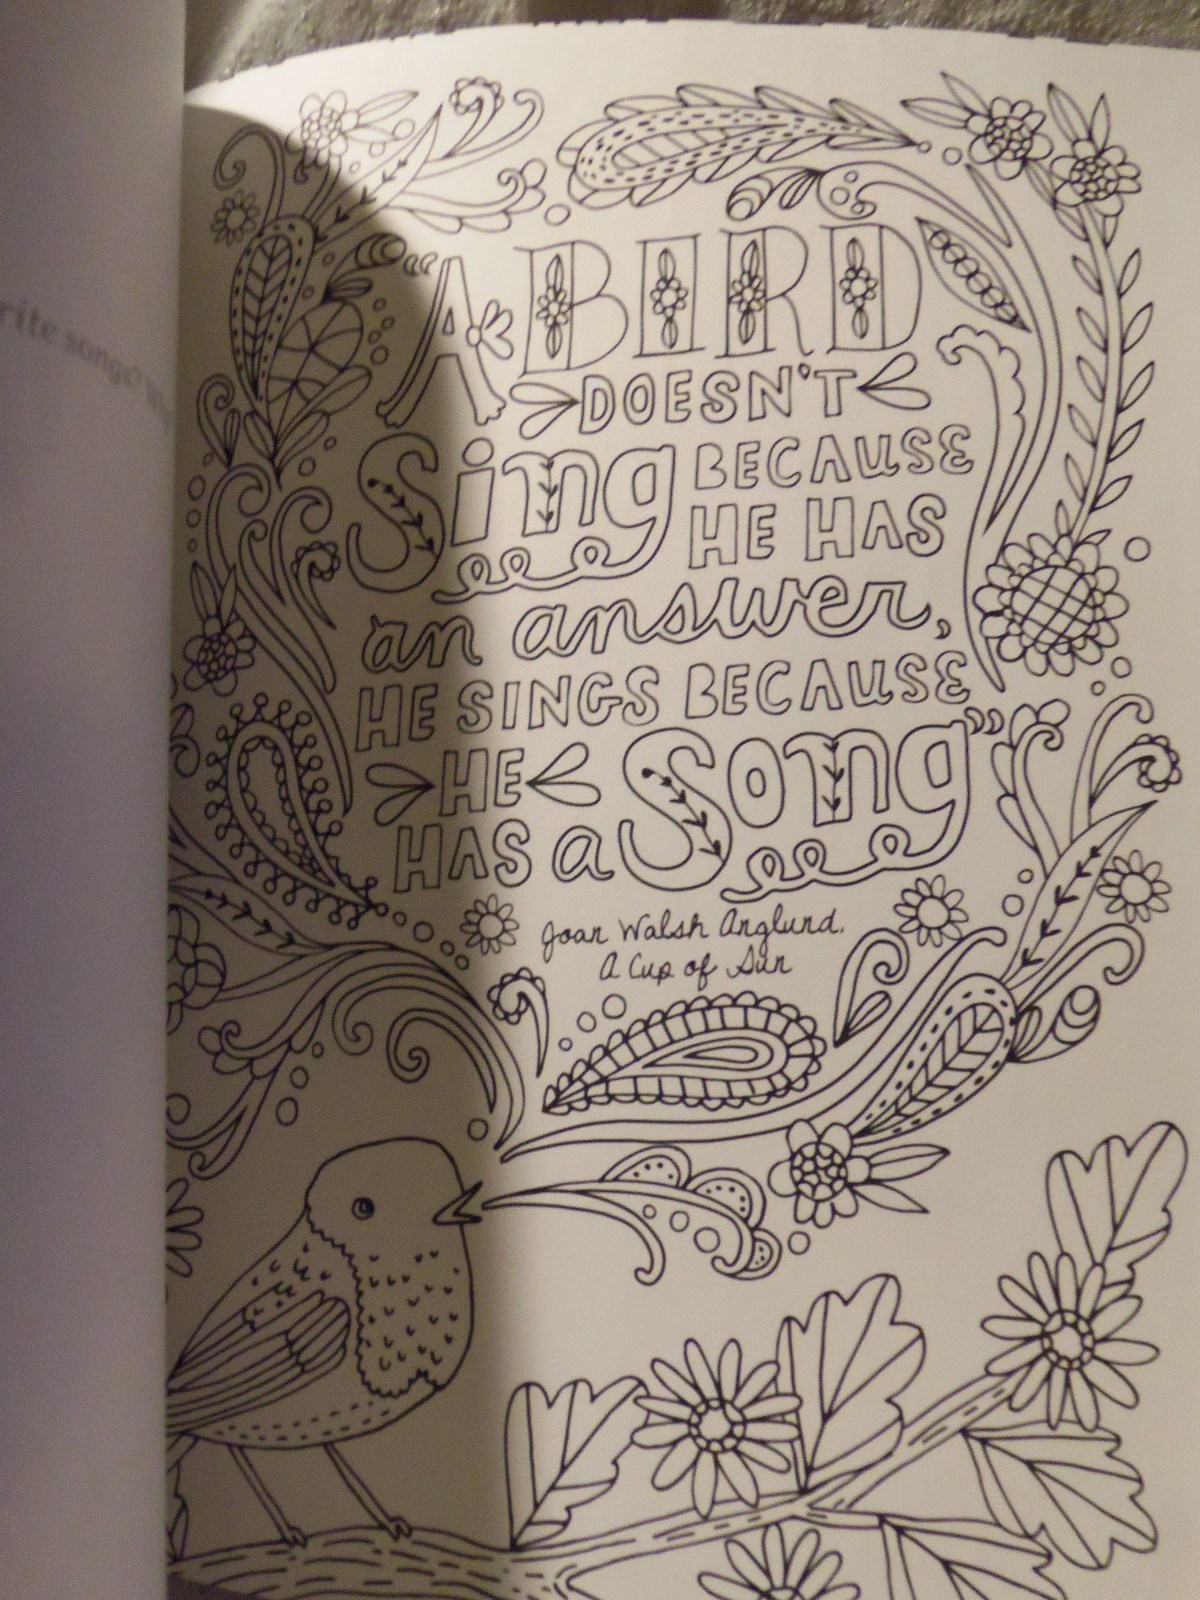 rite songs?
"A BIRD
DOESN'T
Sing BECAUSE
HE HAS
an answer,
HE SINGS BECAUSE
HE
HAS a Song"
Joan Walsh Anglund,
A Cup of Sun